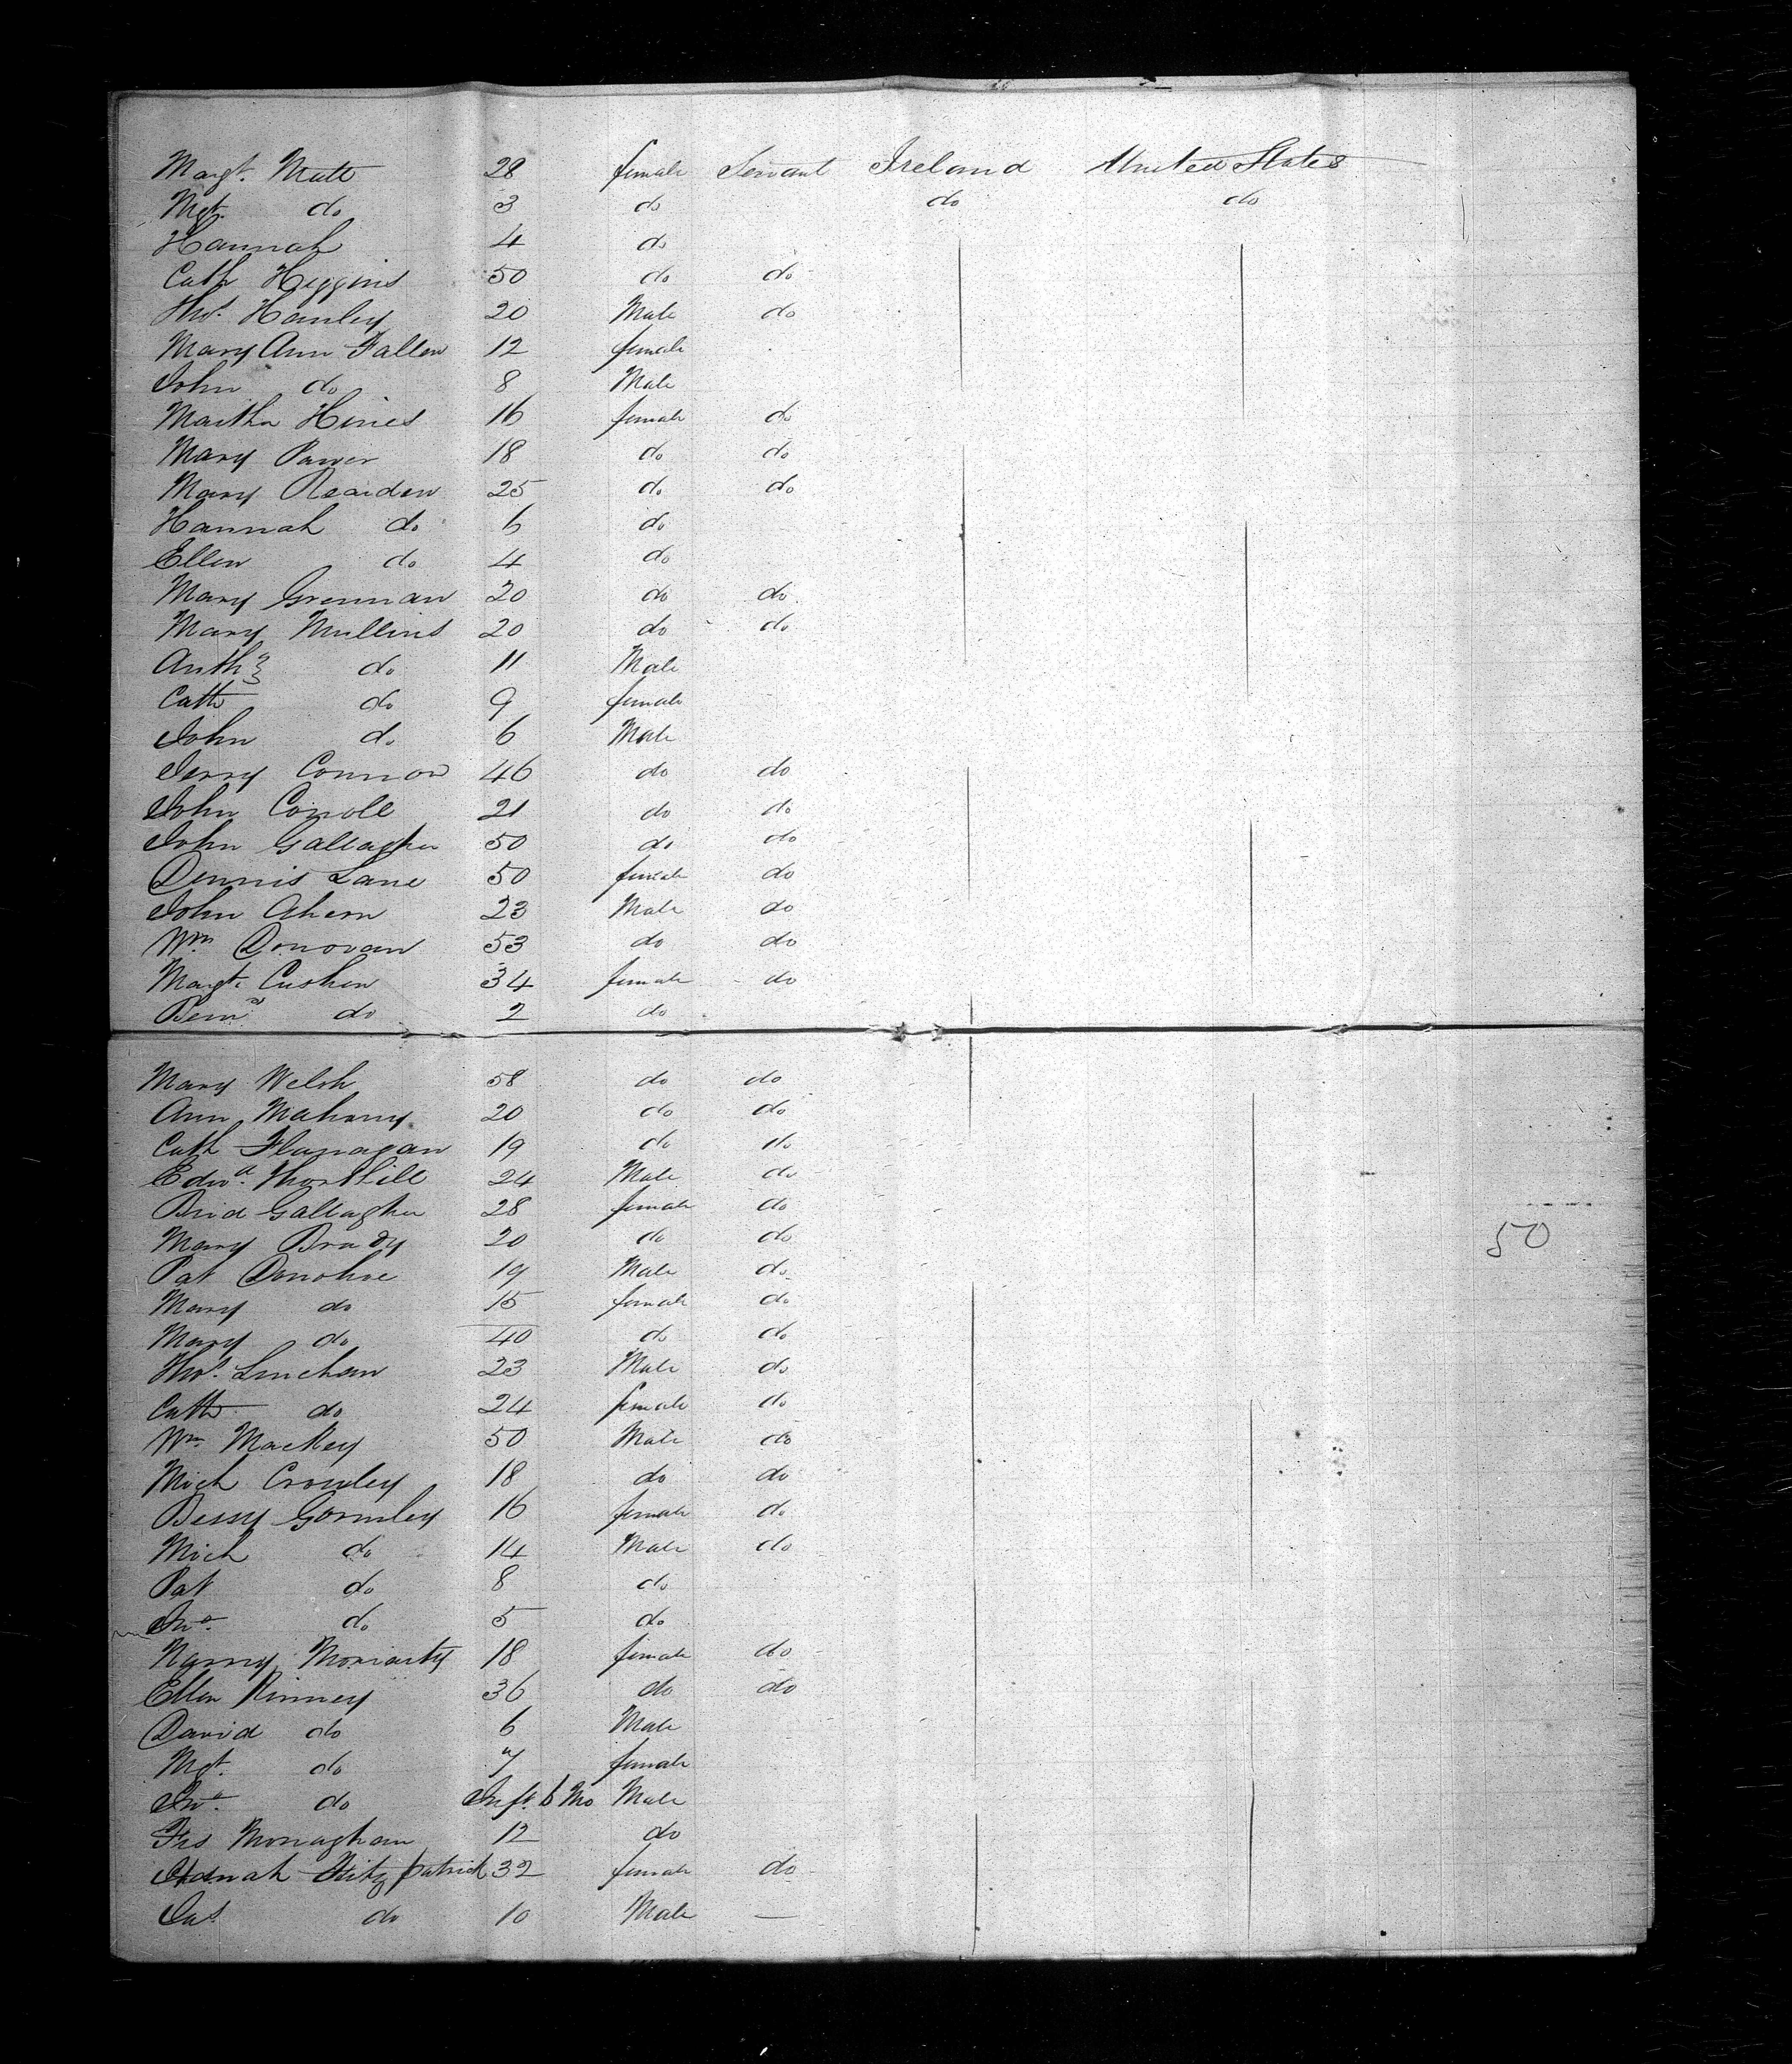 Margt. Mutt 28 female Servant Ireland United States
Mgt. do 3 do do do
Hannah 4 do
Cath Higgins 50 do do
Thos. Hanley 20 Male do
Mary Ann Fallen 12 female
John do 8 Male
Martha Hines 16 female do
Mary Power 18 do do
Mary Rearden 25 do do
Hannah do 6 do
Ellen do 4 do
Mary Grennan 20 do do
Mary Mullins 20 do do
Anthy do 11 Male
Cath do 9 female
John do 6 Male
Jerry Connor 46 do do
John Corroll 21 do do
John Gallagher 50 do do
Dennis Lane 50 female do
John Ahern 23 Male do
Wm Donovan 53 do do
Margt. Cushen 34 female do
Bernd do 2 do
Mary Welsh 58 do do
Ann Mahony 20 do do
Cath Flanagan 19 do do
Edwd. Thornhill 24 Male do
Brid Gallagher 28 female do
50
Mary Brady 20 do do
Pat Donohoe 19 Male do
Mary do 15 female do
Mary do 40 do do
Thos. Linehan 23 Male do
Cath do 24 female do
Wm. Mackey 50 Male do
Mich Crowley 18 do do
Bessy Gormley 16 female do
Mich do 14 Male do
Pat do 8 do
Jno. do 5 do
Nanny Moriarty 18 female do
Ellen Kinney 36 do do
David do 6 Male
Mgt. do 7 female
Jno. do Inft. 6 Mo Male
Frs Monaghan 12 do
Hanah Fitzpatrick 32 female do
Jas do 10 Male —